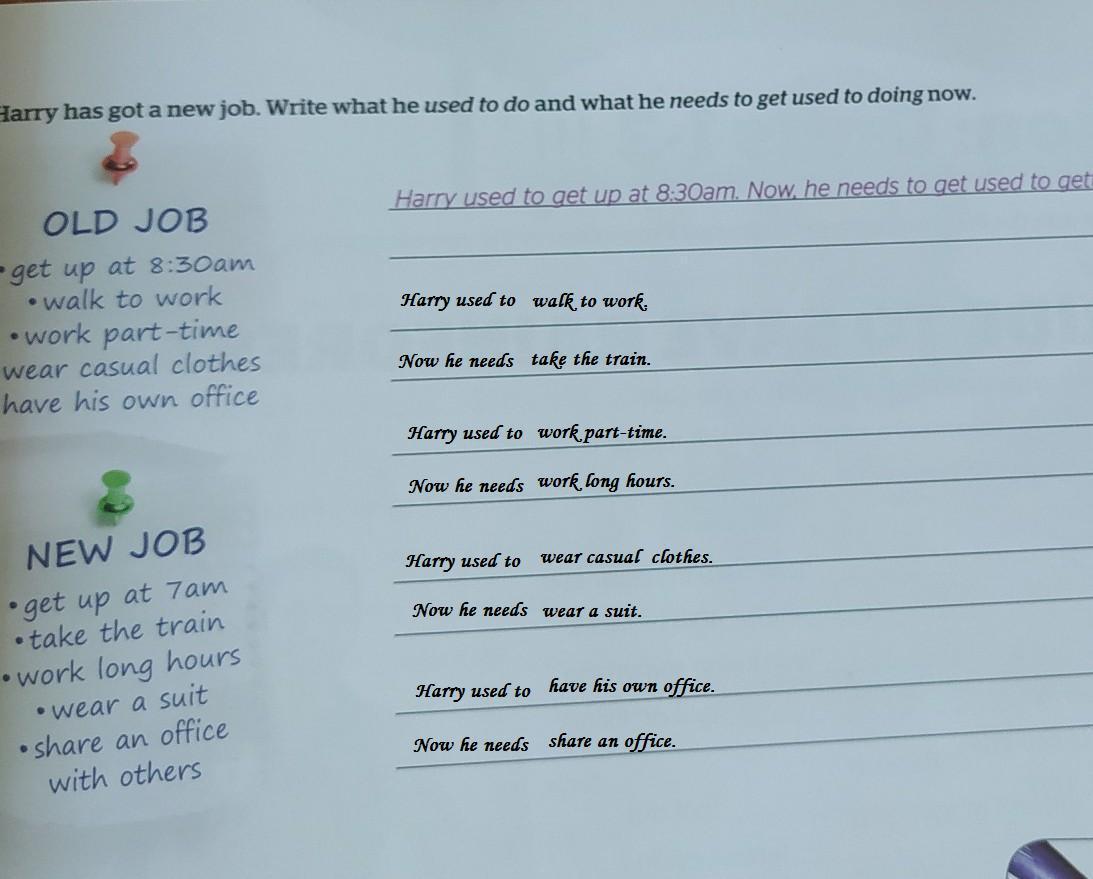 Harry has got a new job. Write what he used to do and what he needs to get used to doing now.
OLD JOB
• get up at 8:30am
• walk to work
• work part-time
wear casual clothes
have his own office
NEW JOB
• get up at 7am
• take the train
• work long hours
• wear a suit
• share an office
with others
Harry used to get up at 8:30am. Now, he needs to get used to get
Harry used to walk to work.
Now he needs take the train.
Harry used to work part-time.
Now he needs work long hours.
Harry used to wear casual clothes.
Now he needs wear a suit.
Harry used to have his own office.
Now he needs share an office.